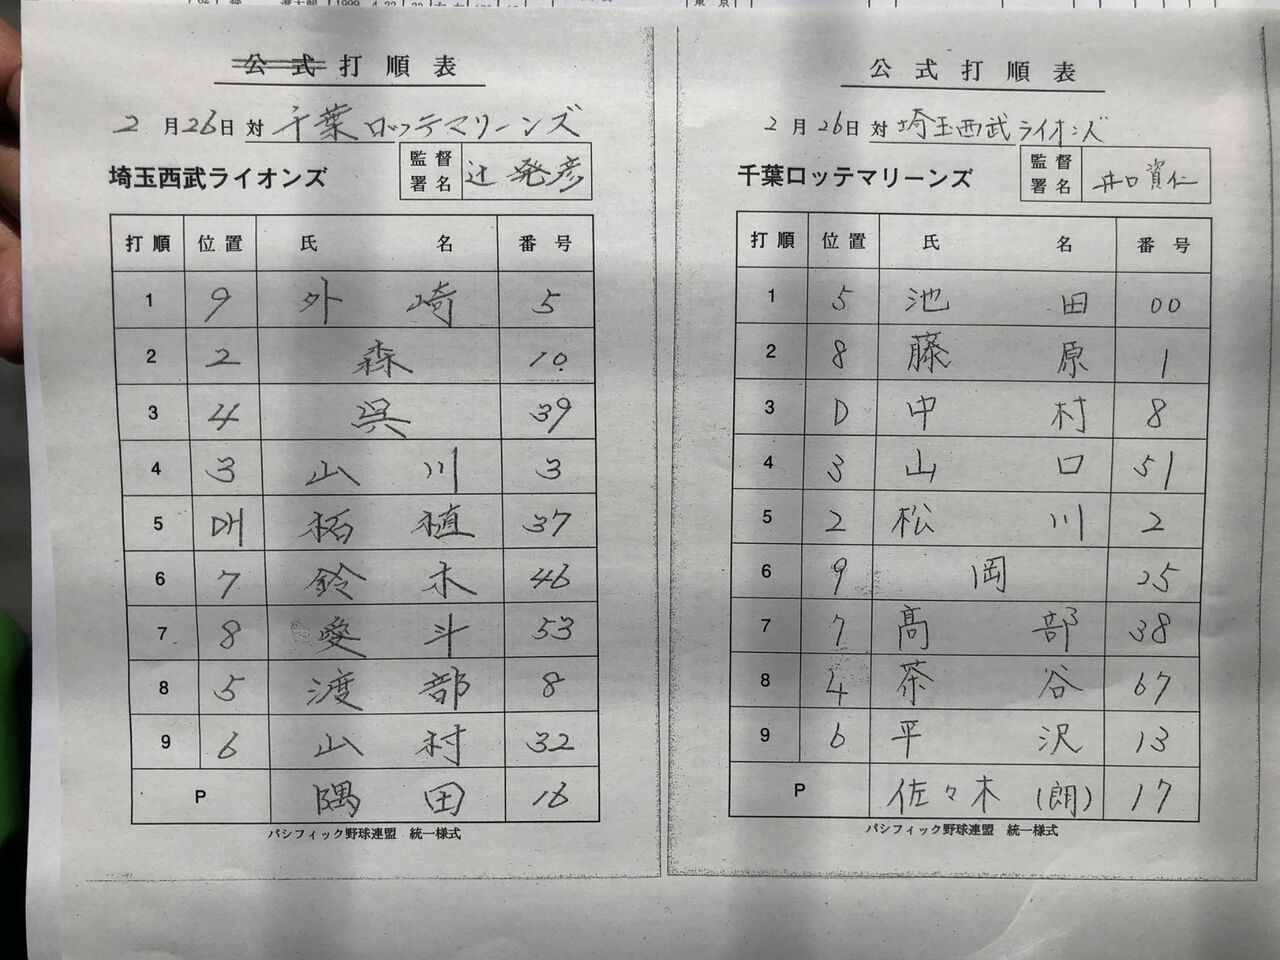 公式打順表
2月26日 対 千葉ロッテマリーンズ
埼玉西武ライオンズ 監督署名 辻 発彦
打順 位置 氏名 番号
1 9 外崎 5
2 2 森 10.
3 4 呉 39
4 3 山川 3
5 DH 柘植 37
6 7 鈴木 46
7 8 愛斗 53
8 5 渡部 8
9 6 山村 32
P 隅田 16
パシフィック野球連盟 統一様式
公式打順表
2月26日 対 埼玉西武ライオンズ
千葉ロッテマリーンズ 監督署名 井口資仁
打順 位置 氏名 番号
1 5 池田 00
2 8 藤原 1
3 D 中村 8
4 3 山口 51
5 2 松川 2
6 9 岡 25
7 7 髙部 38
8 4 茶谷 67
9 6 平沢 13
P 佐々木(朗) 17
パシフィック野球連盟 統一様式